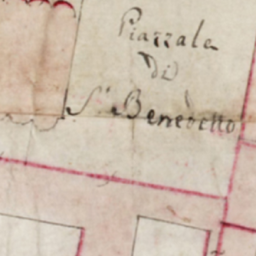 Piazzale
di
S. Benedetto